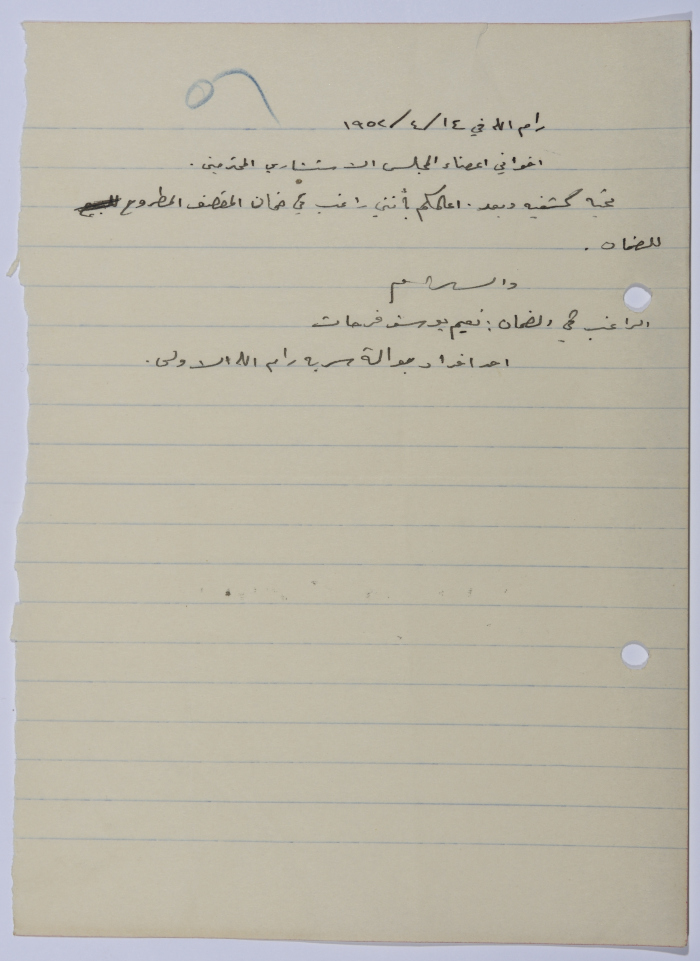 رام الله في ١٤/٤/١٩٥٢
اخواني اعضاء المجلس الاستشاري المحترمين .
تحية كشفيه وبعد . اعلمكم بأنني راغب في ضمان المقصف المطروح
للضمان .
والسلام
الراغب في الضمان : نعيم يوسف فرحات
احد افراد جوالة سرية رام الله الاولى .